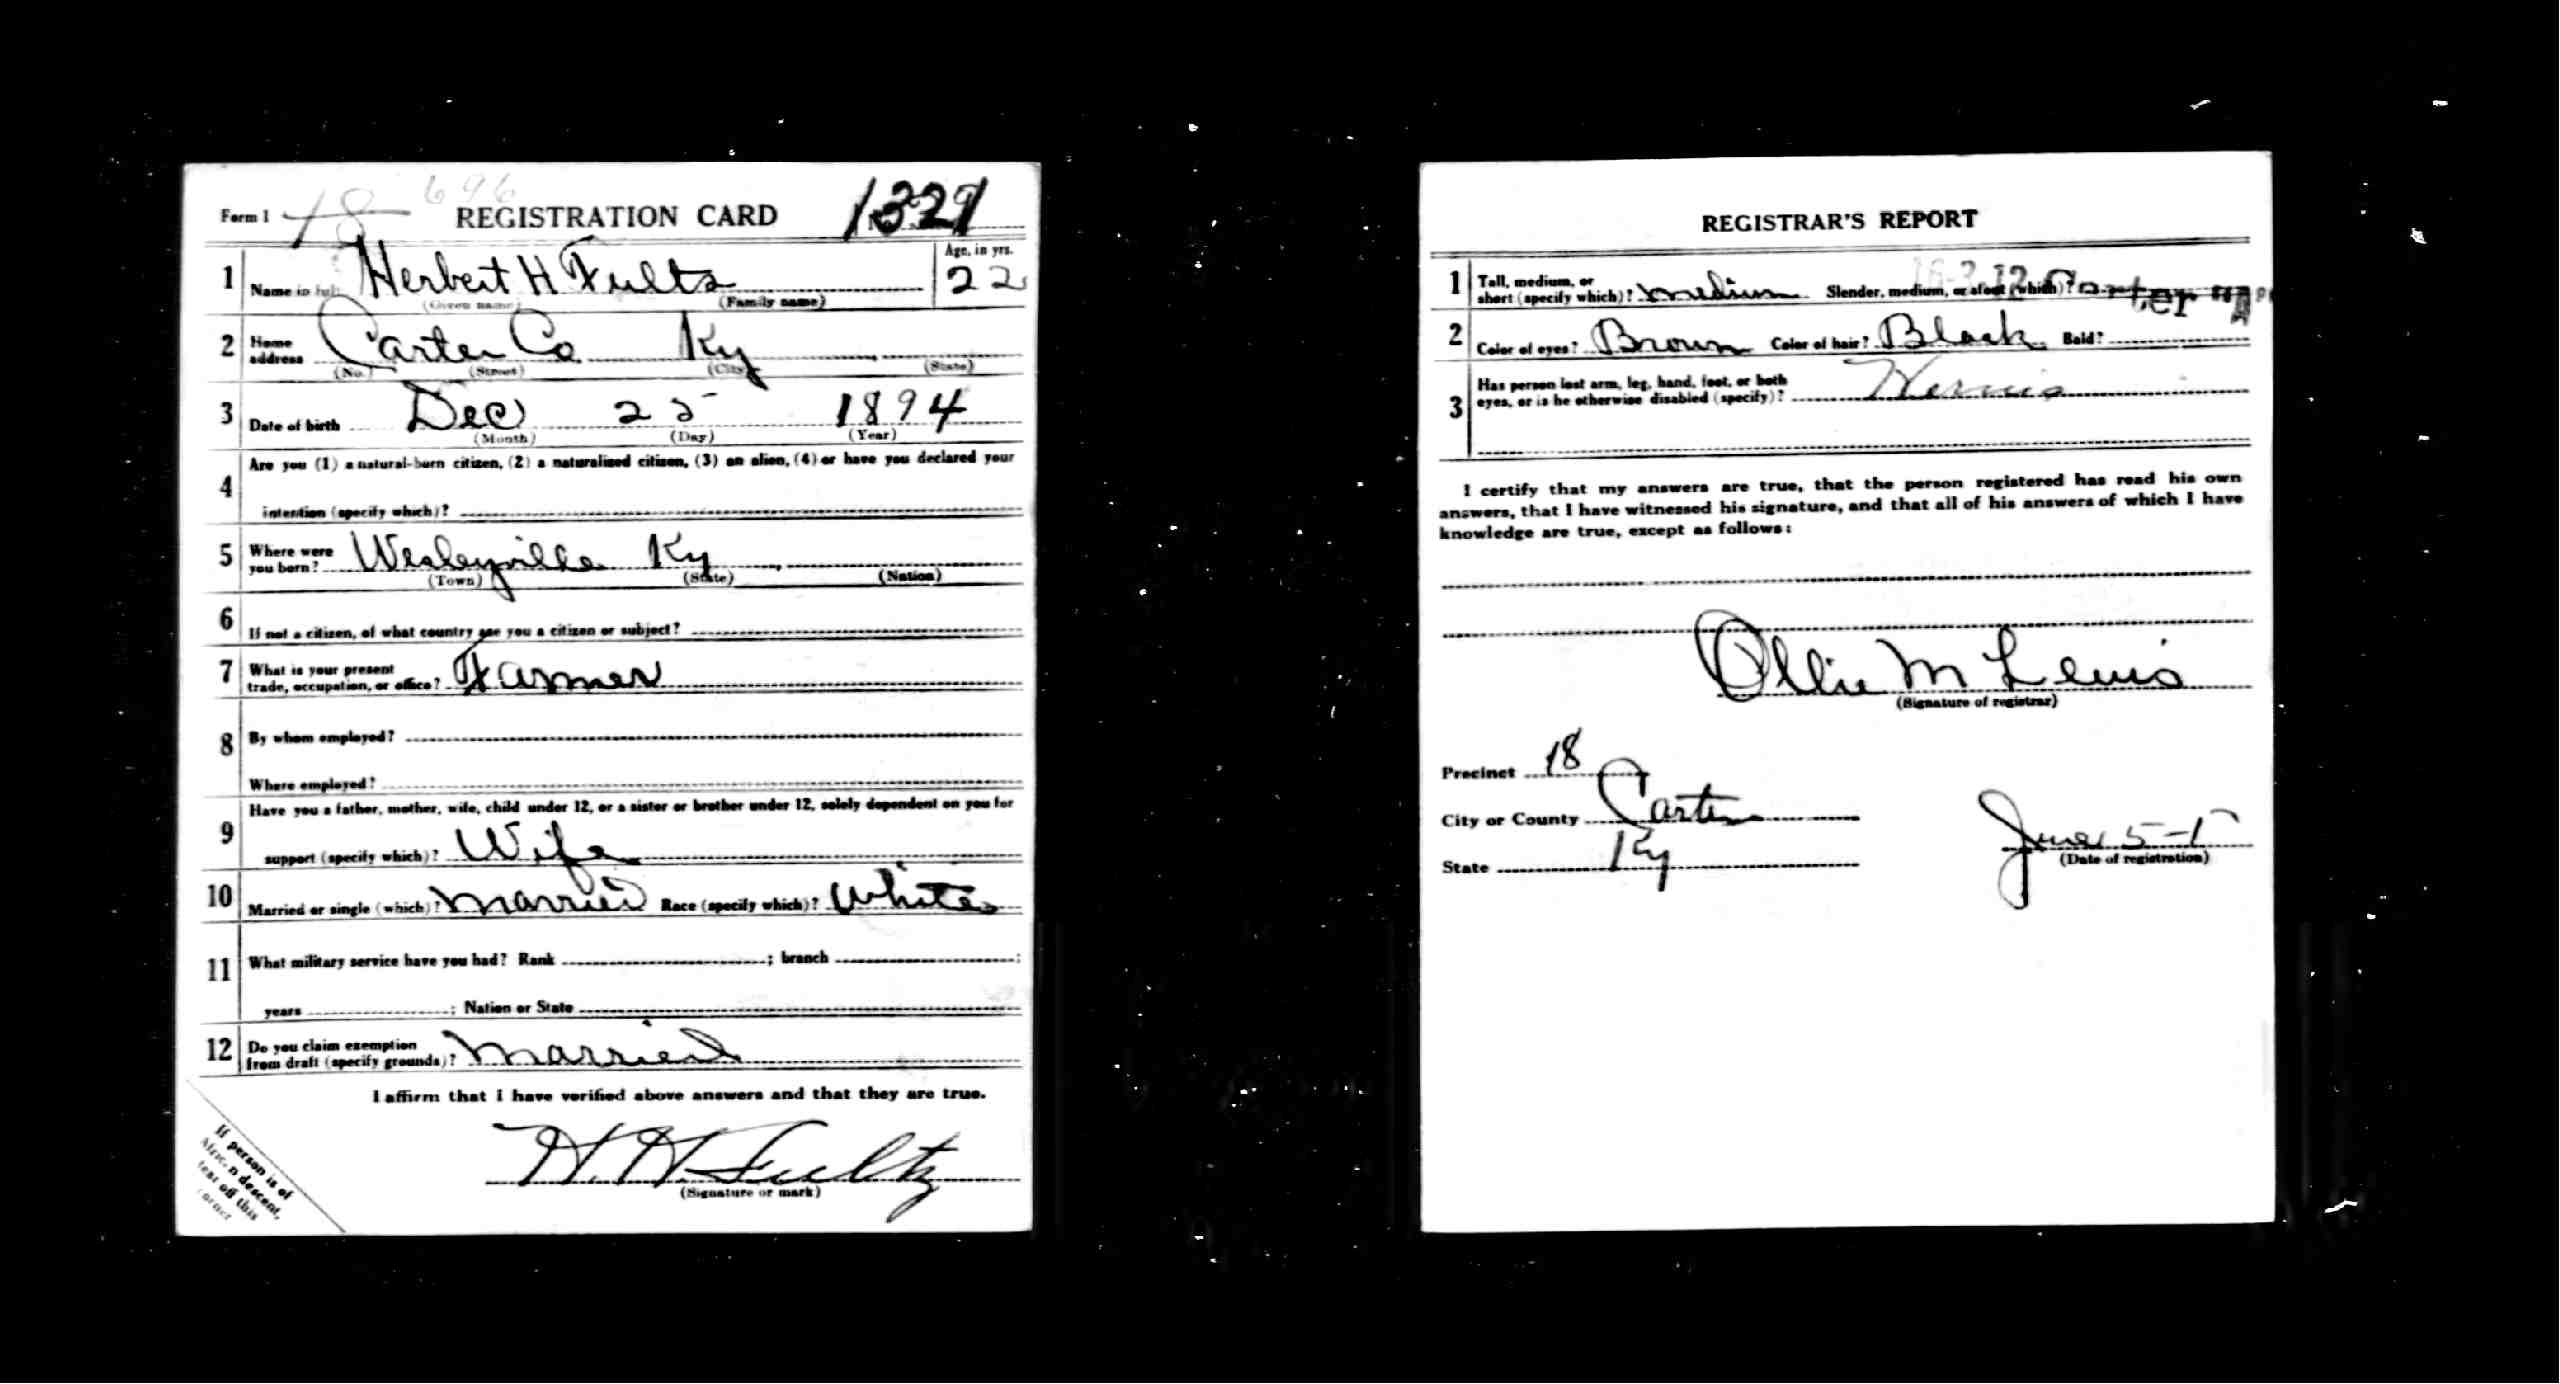 696
Form 1 18 REGISTRATION CARD 1329
Age, in yrs.
1 Name in full Herbert H Fults 22
(Given name) (Family name)
2 Home address Carter Co Ky
(No.) (Street) (City) (State)
3 Date of birth Dec 25 1894
(Month) (Day) (Year)
4 Are you (1) a natural-born citizen, (2) a naturalized citizen, (3) an alien, (4) or have you declared your
intention (specify which)?
5 Where were you born? Wesleyville Ky
(Town) (State) (Nation)
6 If not a citizen, of what country are you a citizen or subject?
7 What is your present
trade, occupation, or office? Farmer
8 By whom employed?
Where employed?
9 Have you a father, mother, wife, child under 12, or a sister or brother under 12, solely dependent on you for
support (specify which)? Wife
10 Married or single (which)? Married Race (specify which)? White
11 What military service have you had? Rank ; branch ;
years ; Nation or State
12 Do you claim exemption
from draft (specify grounds)? Married
I affirm that I have verified above answers and that they are true.
H. H. Fultz
(Signature or mark)
If person is of
African descent,
tear off this
corner
REGISTRAR'S REPORT
1 Tall, medium, or
short (specify which)? Medium Slender, medium, or stout (which)?
2 Color of eyes? Brown Color of hair? Black Bald?
3 Has person lost arm, leg, hand, foot, or both
eyes, or is he otherwise disabled (specify)?
I certify that my answers are true, that the person registered has read his own
answers, that I have witnessed his signature, and that all of his answers of which I have
knowledge are true, except as follows:
Ollie M Lewis
(Signature of registrar)
Precinct 18
City or County Carter
State Ky
June 5-
(Date of registration)